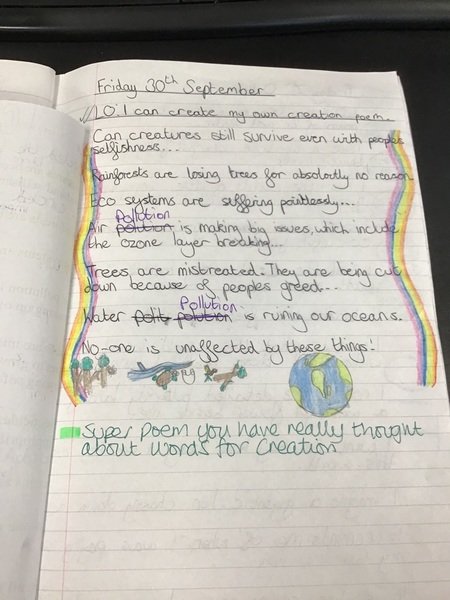 Friday 30th September
LO: I can create my own creation poem.
Can creatures still survive even with peoples
selfishness...
Rainforests are losing trees for absolutly no reason
Eco systems are suffering pointlessly...
Pollution
Air polution is making big issues, which include
the ozone layer breaking...
Trees are mistreated. They are being cut
down because of peoples greed...
Pollution
Water polit polution is ruining our oceans.
No-one is unaffected by these things!
Super poem you have really thought
about words for Creation